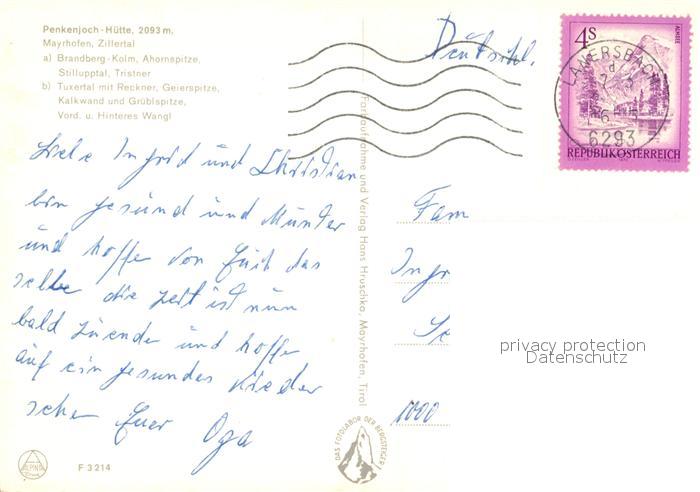 Penkenjoch-Hütte, 2093 m,
Mayrhofen, Zillertal
a) Brandberg-Kolm, Ahornspitze,
Stillupptal, Tristner
b) Tuxertal mit Reckner, Geierspitze,
Kalkwand und Grüblspitze,
Vord. u. Hinteres Wangl
Deutschl.
4S
ALMSEE
LANERSBACH
6293
REPUBLIK ÖSTERREICH
Liebe Ingrid und Christian
bin gesund und Munter
und hoffe von Euch das
selbe die Zeit ist nun
bald zuende und hoffe
auf ein gesundes Wieder
sehen Euer Opa
Farbaufnahme und Verlag Hans Hruschka, Mayrhofen, Tirol
Fam
Ingr
Sc
1000
privacy protection
Datenschutz
DAS FOTOLABOR DER BERGSTEIGER
ALPIN
F 3214